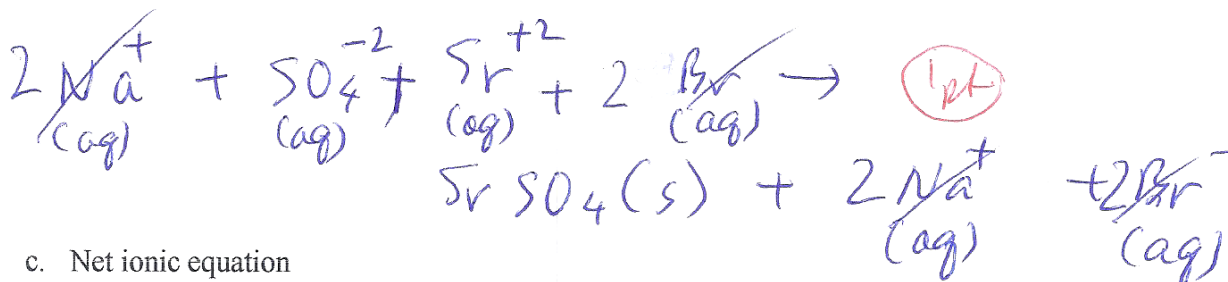 2 Na⁺ (aq) + SO₄⁻² (aq) + Sr⁺² (aq) + 2 Br (aq) → 1pt
SrSO₄(s) + 2Na⁺ (aq) + 2Br⁻ (aq)
c. Net ionic equation